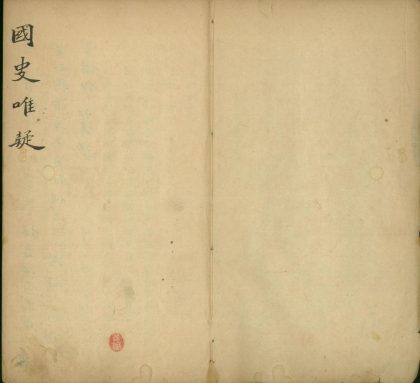 國史唯疑